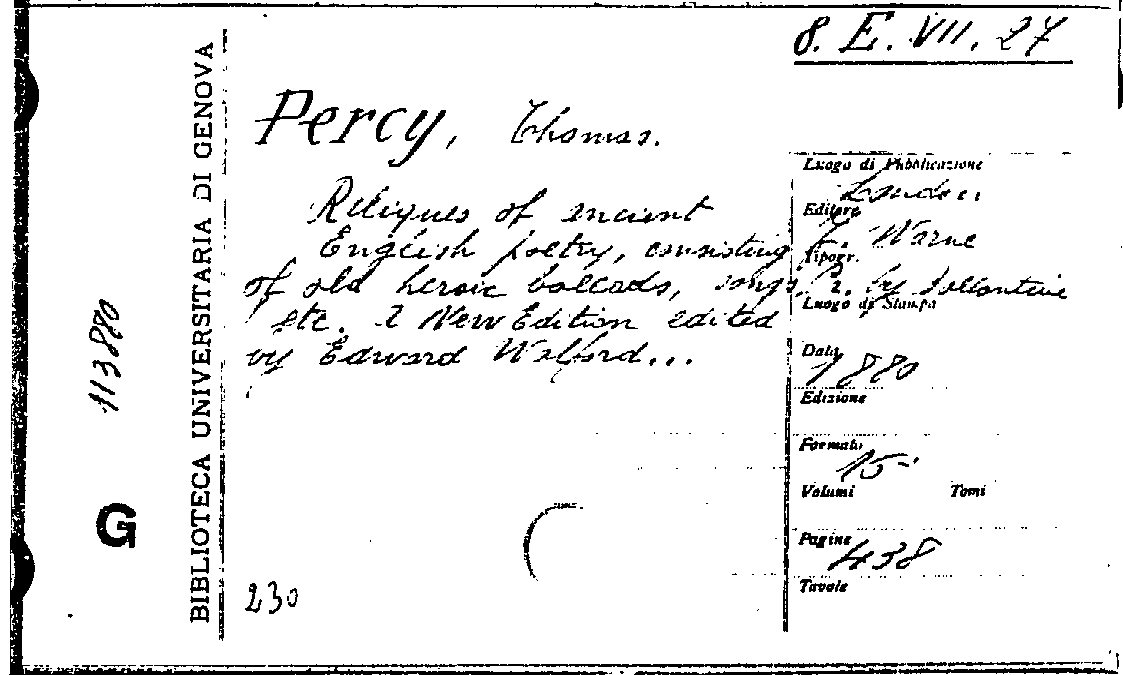 8. E. VII. 27
Percy, Thomas.
Reliques of ancient
English poetry, consisting
of old heroic ballads, songs
etc. A New Edition edited
by Edward Walford...
Luogo di Pubblicazione
London
Editore
F. Warne
Tipogr.
R. by Ballantine
Luogo di Stampa
Data
1880
Edizione
Formato
15·
Volumi Tomi
Pagine
438
Tavole
230
BIBLIOTECA UNIVERSITARIA DI GENOVA
113880
G